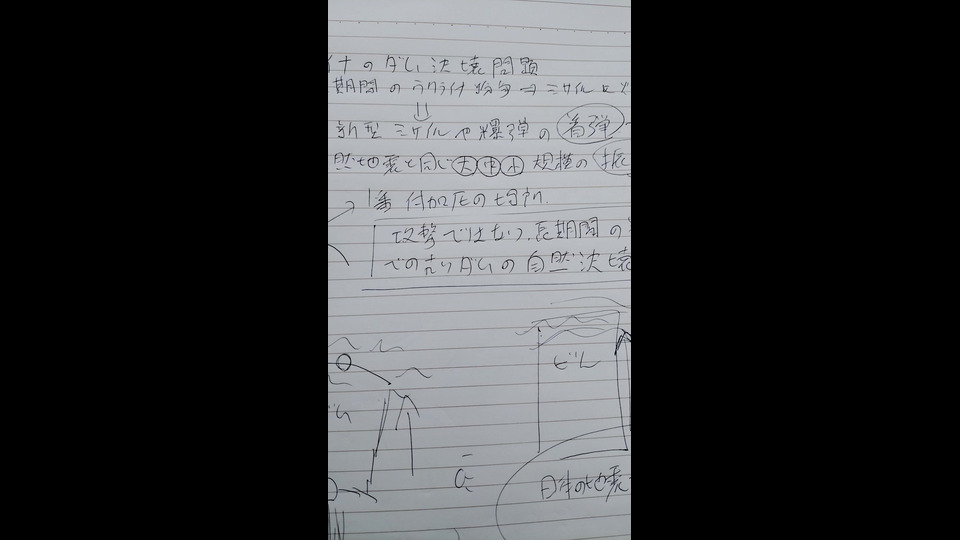 イナのダム決壊問題
期間のウクライナ紛争⇒ミサイル
新型ミサイルや爆弾の着弾
然地震と同じ大中小規模の振
付加圧の場所
攻撃ではなく、長期間の
ダムの自然決壊
ビル
ム
日本の地震